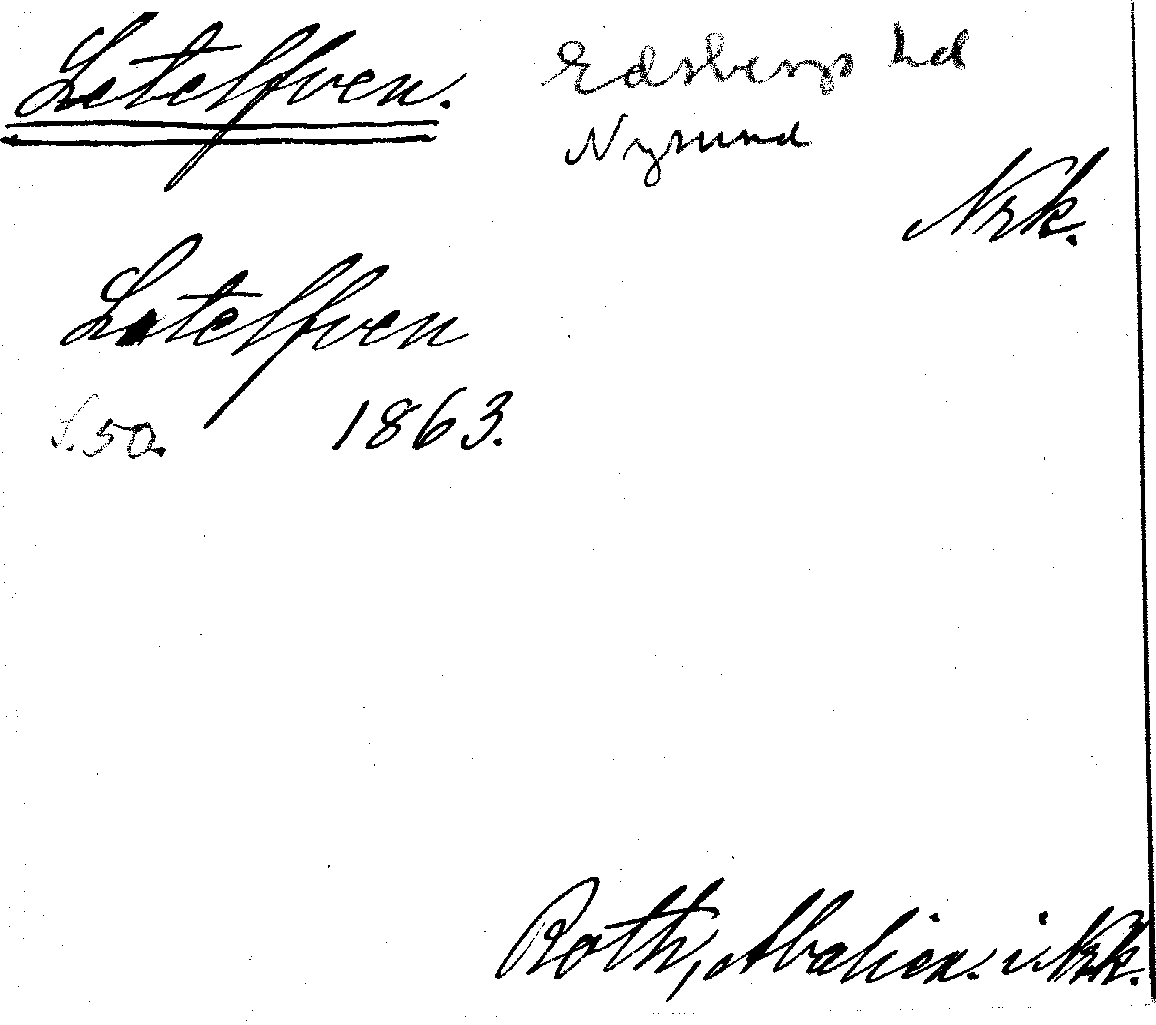 Letelfven. Edsbergs hd
Nysund
Nrk.
Letelfven
S. 50. 1863.
Roth, i Nrk.